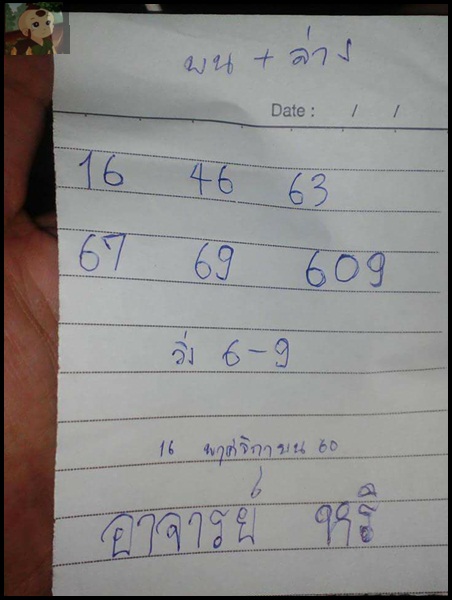 บน + ล่าง
Date : / /
16 46 63
67 69 609
วิ่ง 6-9
16 พฤศจิกายน 60
อาจารย์ หริ